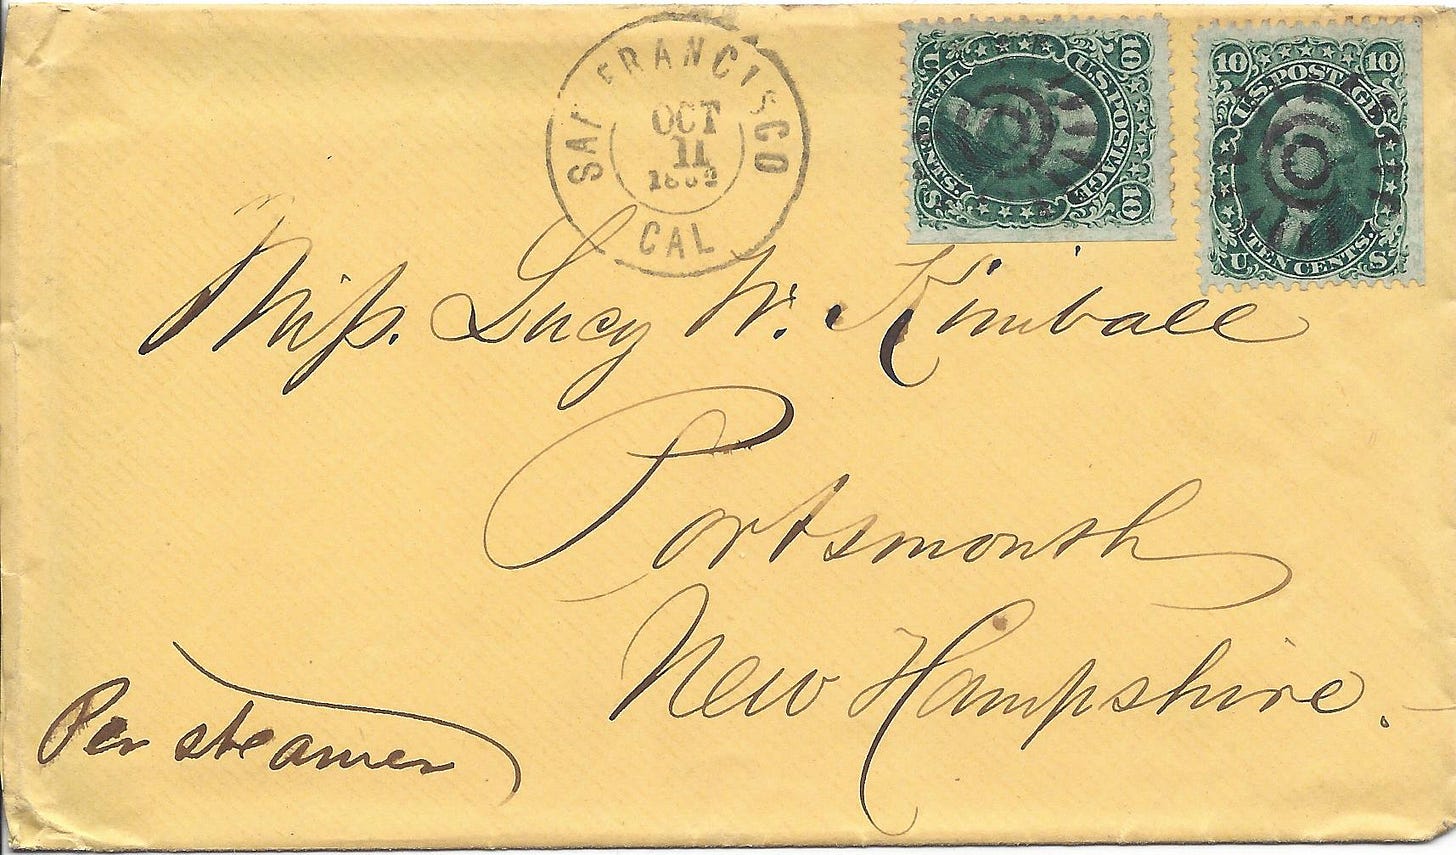 SAN FRANCISCO
OCT
11
1862
CAL
10 10
U.S. POSTAGE
TEN CENTS.
U S
10 10
U.S. POSTAGE
TEN CENTS.
U S
Miss. Lucy W. Kimball
Portsmouth
New Hampshire.
Per steamer